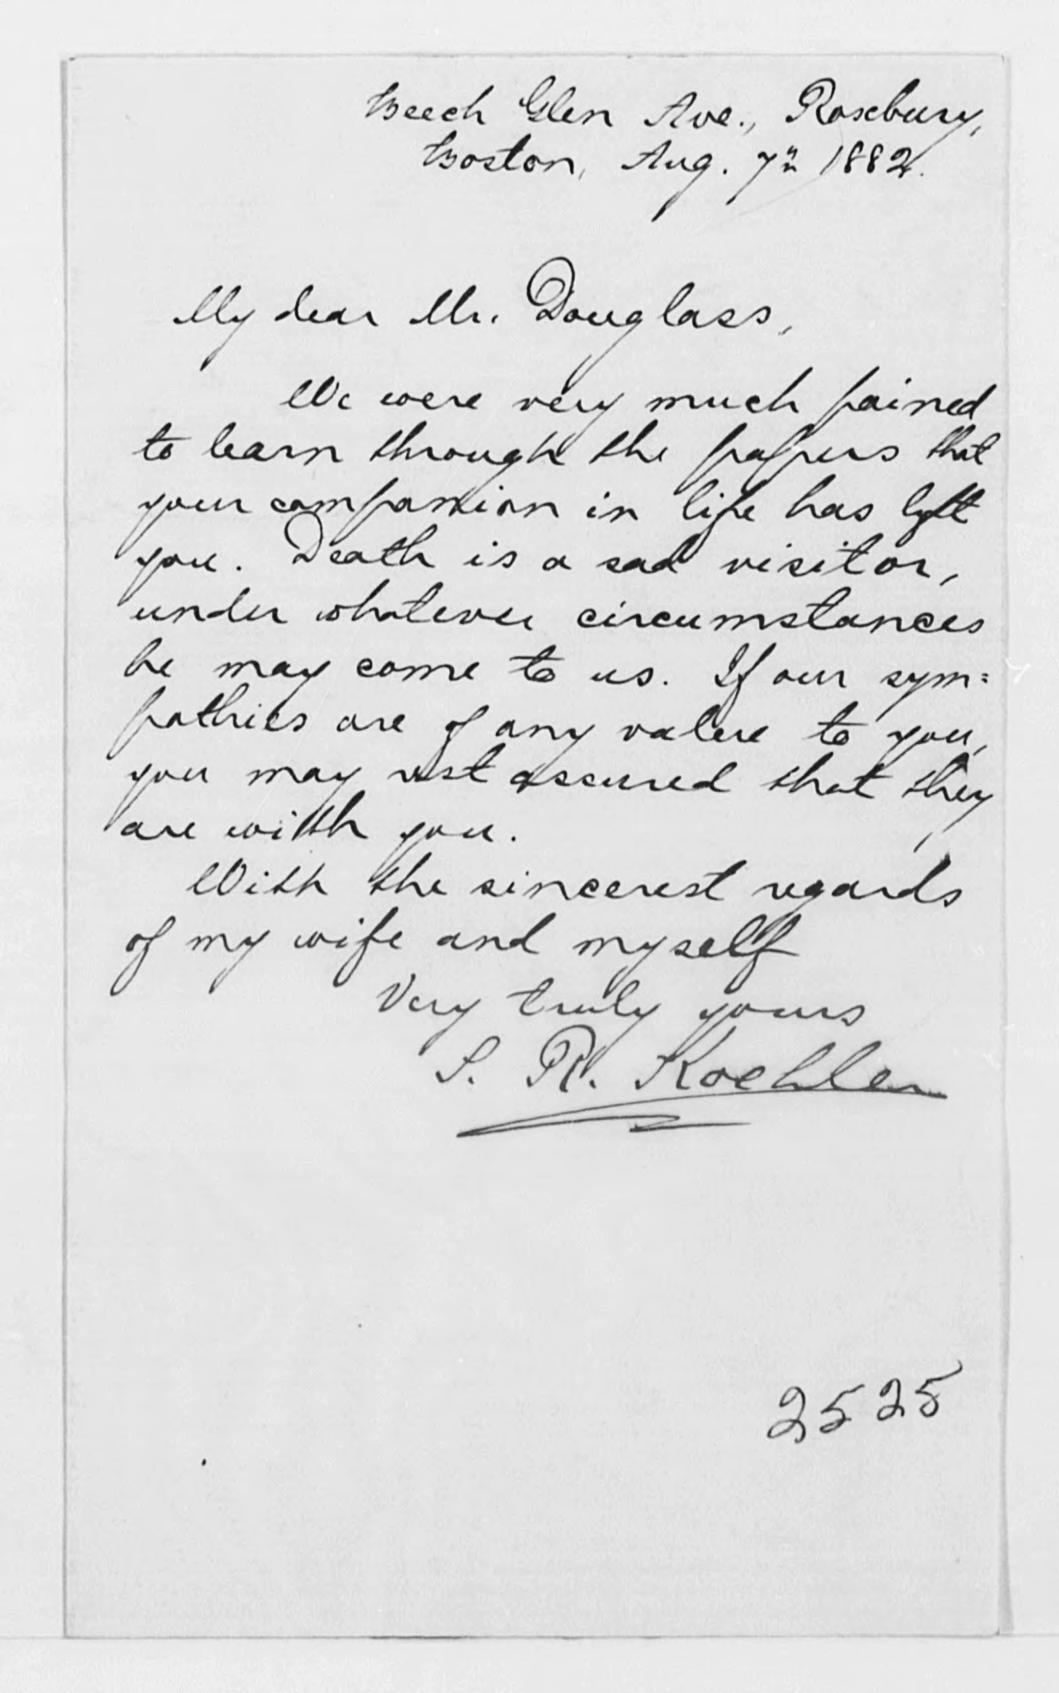 Beech Glen Ave., Roxbury,
Boston, Aug. 7th 1882.
My dear Mr. Douglass,
We were very much pained
to learn through the papers that
your companion in life has left
you. Death is a sad visitor,
under whatever circumstances
he may come to us. If our sym=
pathies are of any value to you,
you may rest assured that they
are with you.
With the sincerest regards
of my wife and myself
Very truly yours
S. R. Koehler
2525